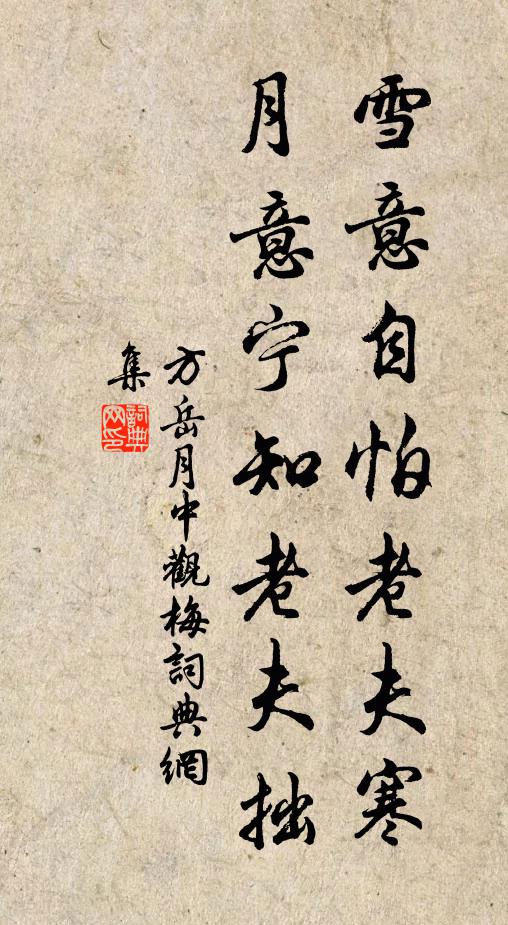 雪意自怕老夫寒
月意宁知老夫拙
方岳月中觀梅詞典網
集
詞典網印